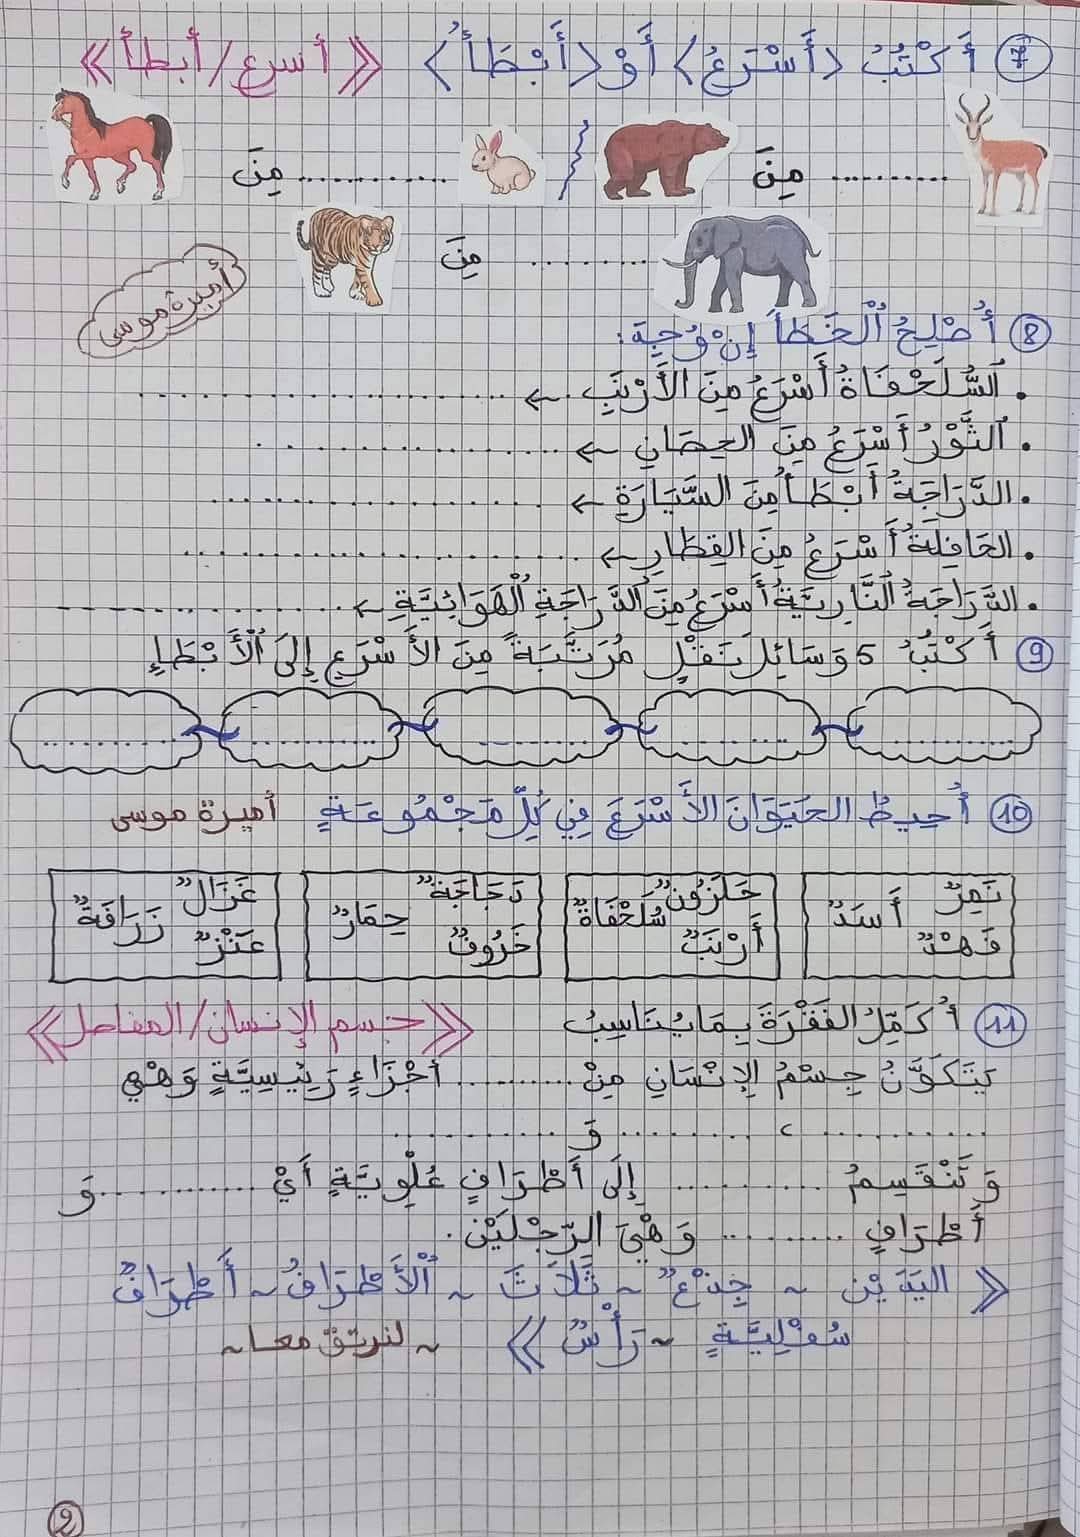 7 أَكْتُبُ <أَسْرَعُ> أَوْ <أَبْطَأُ> «أسرع/أبطأ»
.......... مِنَ
.............. مِنَ
........ مِنَ
أميرة موسى
8 أُصْلِحُ ٱلْخَطَأَ إِنْ وُجِدَ:
. ٱلسُّلَحْفَاةُ أَسْرَعُ مِنَ الأَرْنَبِ ← ....................
. الثَّوْرُ أَسْرَعُ مِنَ الحِصَانِ ← ....................
. الدَّرَاجَةُ أَبْطَأُ مِنَ السَّيَارَةِ ← ....................
. الحَافِلَةُ أَسْرَعُ مِنَ القِطَارِ ← ....................
. الدَّرَاجَةُ ٱلنَّارِيَّةُ أَسْرَعُ مِنَ ٱلدَّرَاجَةِ ٱلْهَوَائِيَّةِ ← ....................
9 أَكْتُبُ 5 وَسَائِلَ نَقْلٍ مُرَتَّبَةً مِنَ الأَسْرَعِ إِلَى ٱلْأَبْطَإِ
10 أُحِيطُ الحَيَوَانَ الأَسْرَعَ فِي كُلِّ مَجْمُوعَةٍ أميرة موسى
نَمِرٌ أَسَدٌ فَهْدٌ
حَلَزُونٌ سُلَحْفَاةٌ أَرْنَبٌ
دَجَاجَةٌ حِمَارٌ خَرُوفٌ
غَزَالٌ زَرَافَةٌ عَنْزٌ
11 أُكَمِّلُ الفَقْرَةَ بِمَا يُنَاسِبُ «جسم الإنسان/المفاصل»
يَتَكَوَّنُ جِسْمُ الإِنْسَانِ مِنْ .......... أَجْزَاءٍ رَئِيسِيَّةٍ وَهْيِ
.......... ، .......... وَ ..........
وَ تَنْقَسِمُ .......... إِلَى أَطْرَافٍ عُلْوِيَّةٍ أَيْ .......... وَ
أَطْرَافٍ .......... وَهْيَ الرِّجْلَيْنِ.
«اليَدَيْنِ ~ جِذْعٌ ~ ثَلَاثَ ~ ٱلْأَطْرَافُ ~ أَطْرَافٌ
سُفْلِيَّةٍ ~ رَأْسٌ» ~ لنرتق معا ~
2